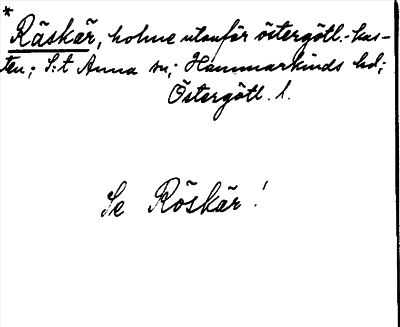 *
Räskär, holme utanför östergötl.-kus-
ten; S:t Anna sn; Hammarkinds hd;
Östergötl. l.
Se Röskär!